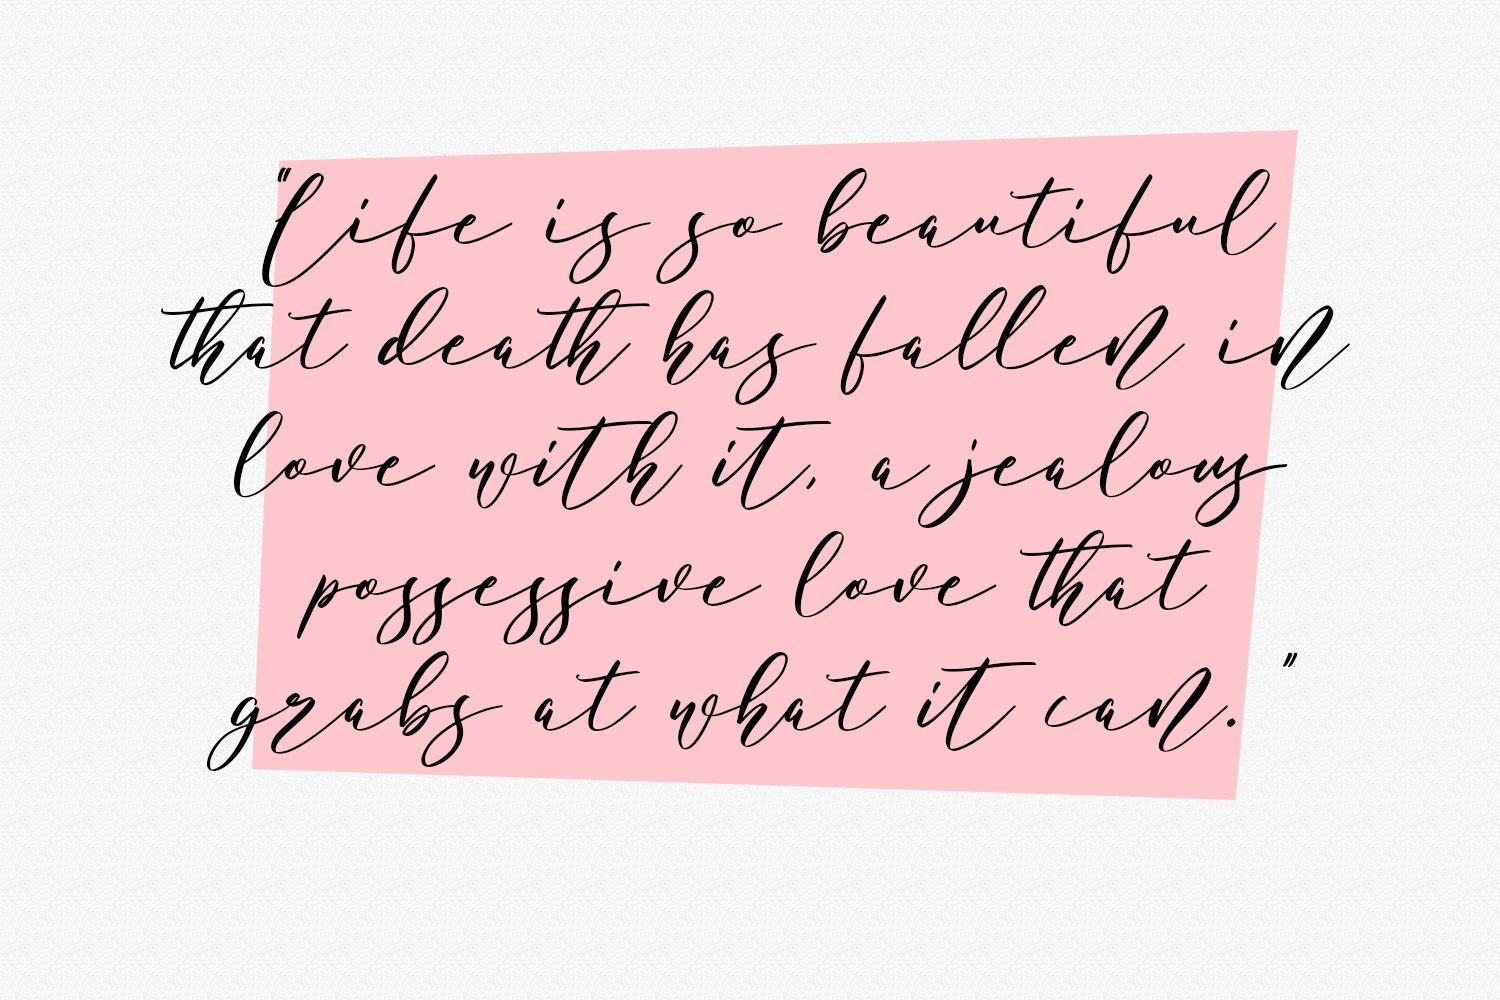 "Life is so beautiful
that death has fallen in
love with it, a jealous
possessive love that
grabs at what it can."